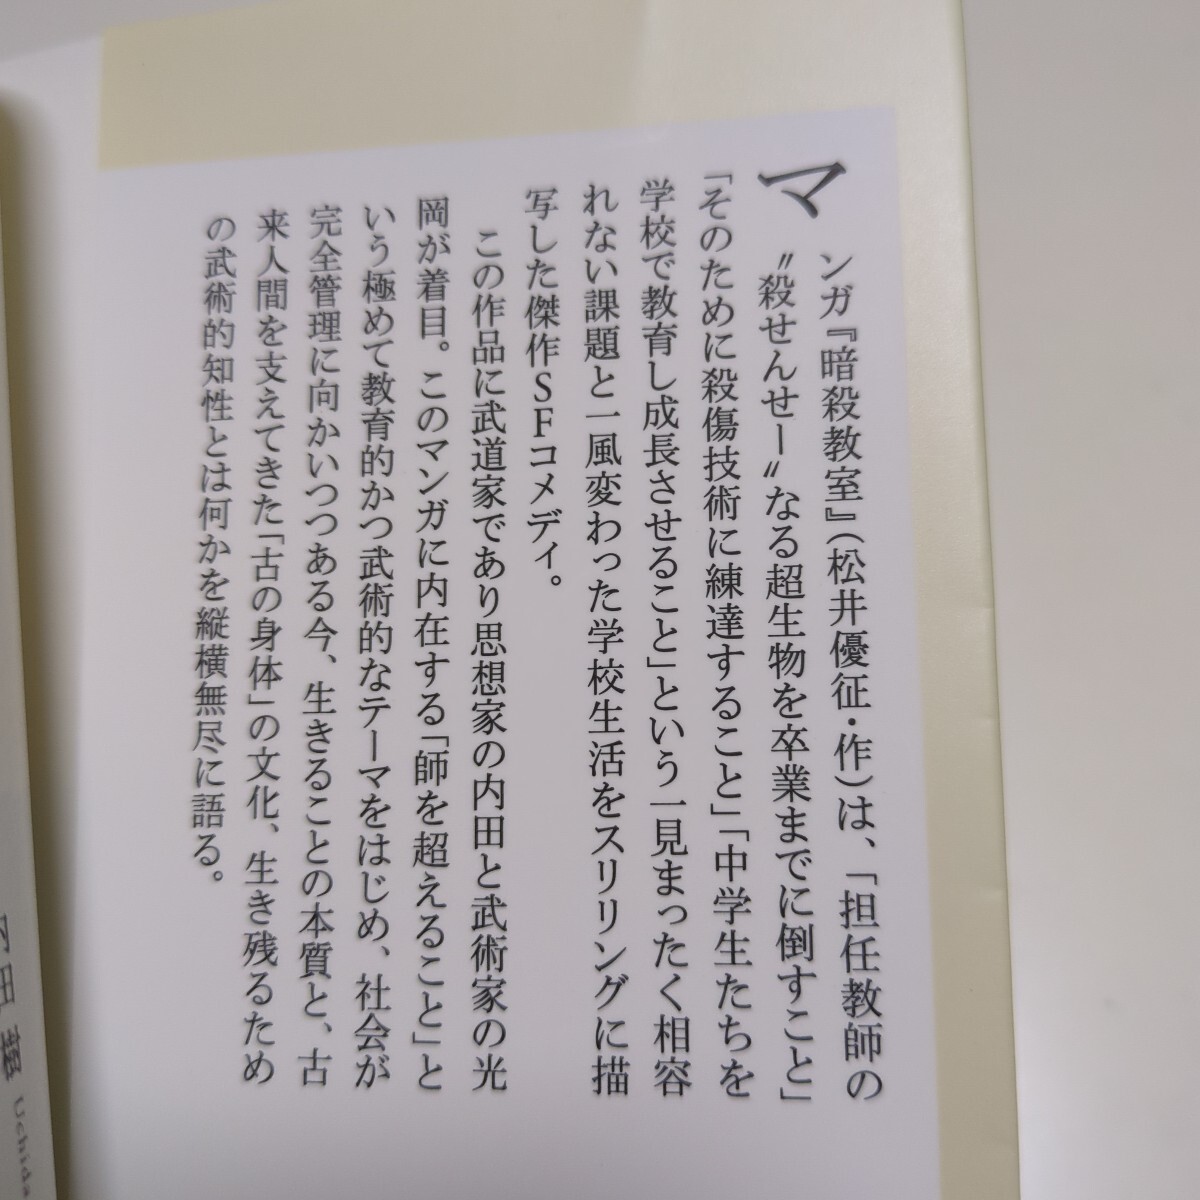 マンガ『暗殺教室』（松井優征・作）は、「担任教師の
〝殺せんせー〟なる超生物を卒業までに倒すこと」
「そのために殺傷技術に練達すること」「中学生たちを
学校で教育し成長させること」という一見まったく相容
れない課題と一風変わった学校生活をスリリングに描
写した傑作SFコメディ。
この作品に武道家であり思想家の内田と武術家の光
岡が着目。このマンガに内在する「師を超えること」と
いう極めて教育的かつ武術的なテーマをはじめ、社会が
完全管理に向かいつつある今、生きることの本質と、古
来人間を支えてきた「古の身体」の文化、生き残るため
の武術的知性とは何かを縦横無尽に語る。
内田 樹 Uchida